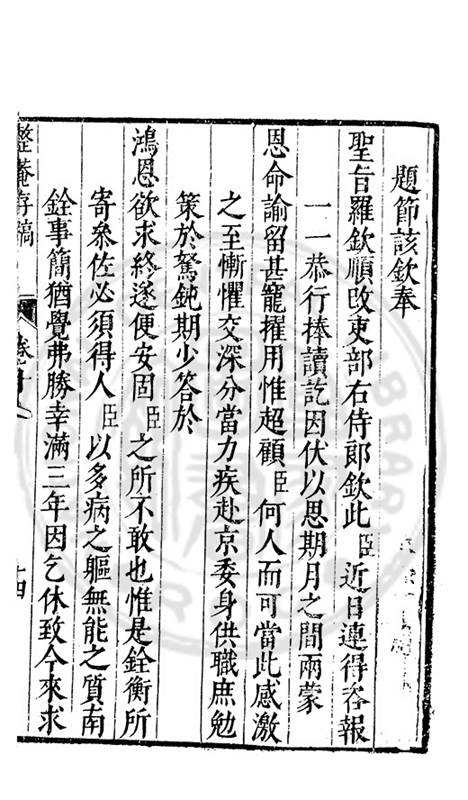 題節該欽奉
聖旨羅欽順改吏部右侍郎欽此臣近日連得咨報
一一恭行捧讀訖因伏以思期月之間兩蒙
恩命諭留甚寵擢用惟超顧臣何人而可當此感激
之至慚懼交深分當力疾赴京委身供職庶勉
策於駑鈍期少答於
鴻恩欲求終遂便安固臣之所不敢也惟是銓衡所
寄叅佐必須得人臣以多病之軀無能之質南
銓事簡猶覺弗勝幸滿三年因乞休致今來求
整菴存稿 卷